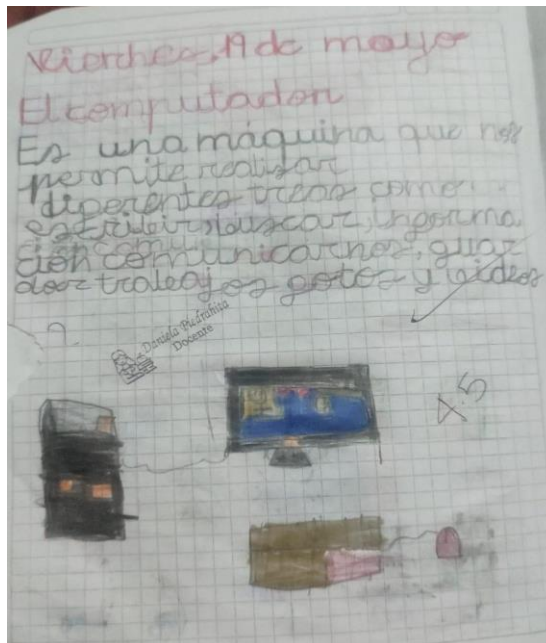 Viernes, 19 de mayo
El computador
Es una máquina que nos
permite realizar
diperentes treas como:
estrileir, buscar, informa
ción comunicarnos, guar
dar traleajos gotos y videos
Daniela Piedrahita
Docente
4.5